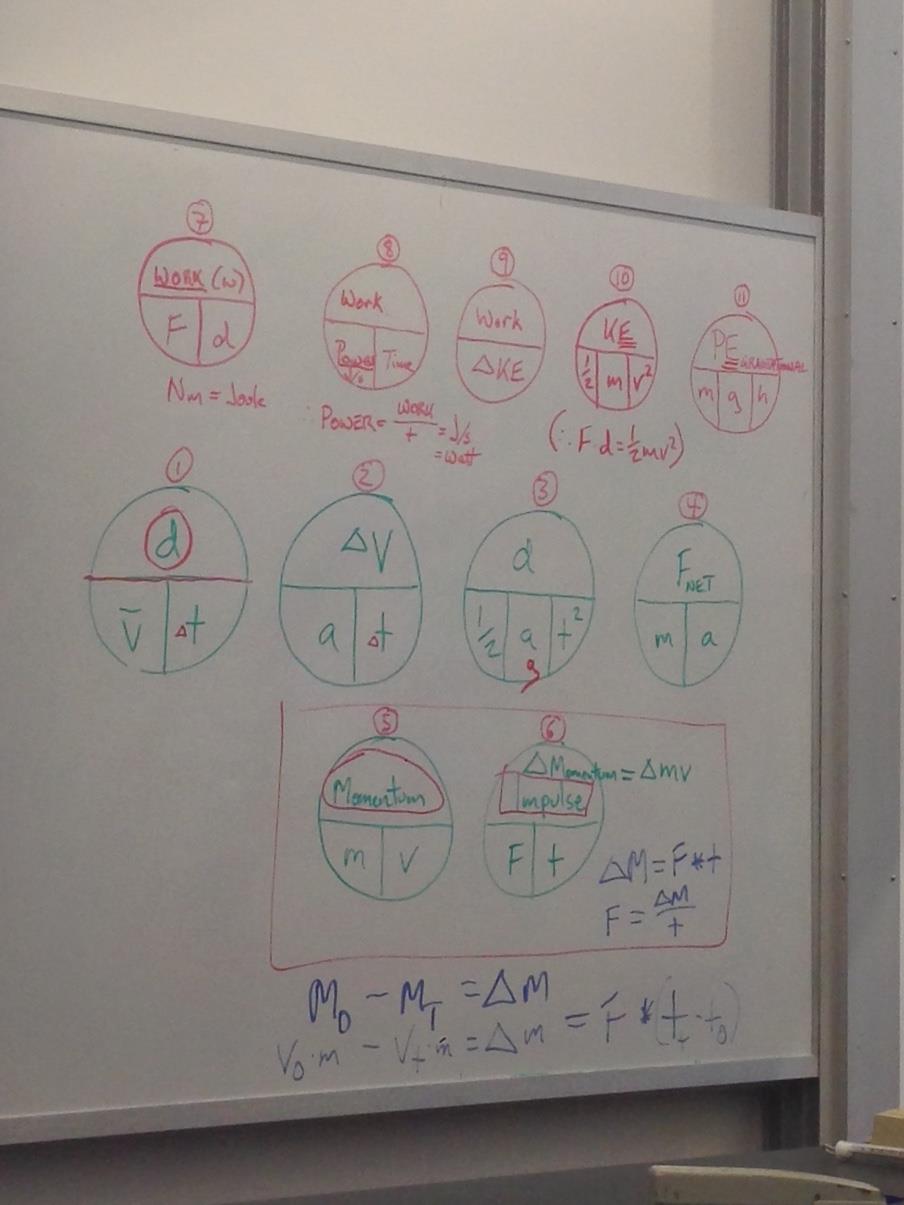 7 8 9 10 11
WORK (w)
F d
Nm = Joule
Work
Power Time
∴ POWER = WORK/t = J/s
= watt
Work
ΔKE
KE
1/2 m v²
(∴ F·d = 1/2 mv²)
PE GRAVITATIONAL
m g h
1 2 3 4
d
v̄ Δt
ΔV
a Δt
d
1/2 a t²
g
F NET
m a
5 6
Momentum
m v
ΔMomentum = Δmv
Impulse
F t
ΔM = F * t
F = ΔM/t
M₀ - M₁ = ΔM
V₀·m - V_t·m = Δm = F * (t_t - t₀)